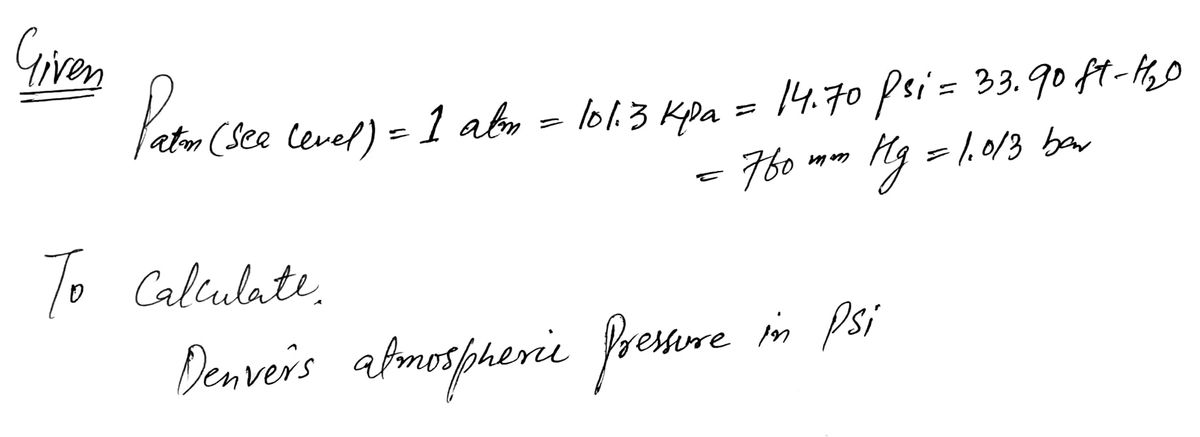 Given
Patm (Sea level) = 1 atm = 101.3 KPa = 14.70 Psi = 33.90 ft-H₂O
= 760 mm Hg = 1.013 bar
To Calculate.
Denver's atmospheric Pressure in Psi